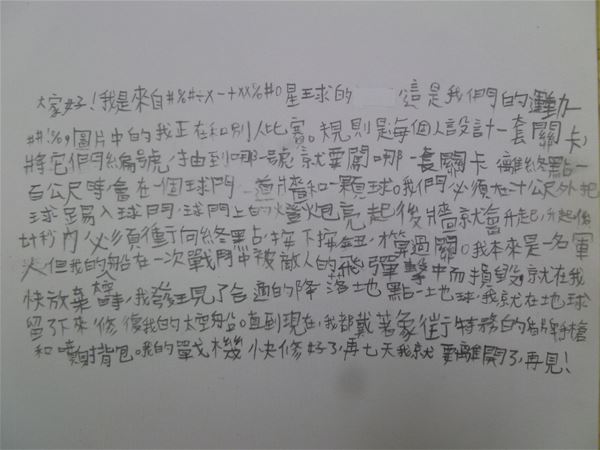 大家好！我是來自#%#÷x-+xx%#0星球的 這是我們的運動
##'%9,圖片中的我正在和別人比賽。規則是每個人設計一套關卡,
將它們編號,抽到哪一號就要闖哪一套關卡 離終點一
百公尺時,會在一個球門、一道牆和一顆球。我們必須在十公尺外把
球踢入球門,球門上的燈炮亮起後牆就會升起,升起後
十秒內必須衝向終點,按下按鈕,才算過關。我本來是一名軍
人但我的船在一次戰鬥中被敵人的飛彈擊中而損毀,就在我
快放棄時,我發現了合適的降落地點-地球,我就在地球
留下來,修復我的太空船。直到現在,我都戴著象衛特務的 手槍
和噴射背包。我的戰機快修好了,再七天我就要離開了,再見!